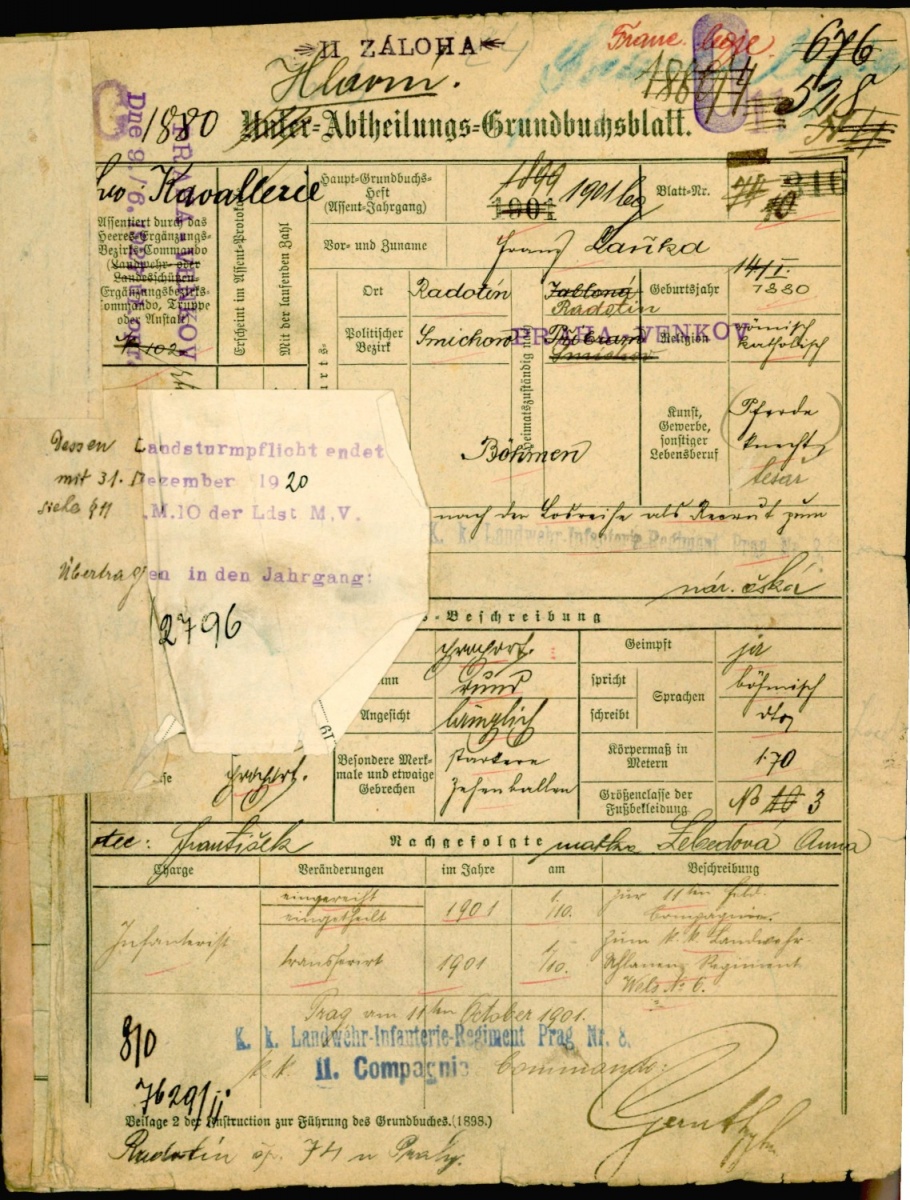 II ZÁLOHA
Franc. legie
676
Hlavní.
528
1880 Unter-Abtheilungs-Grundbuchsblatt.
Dne 9./6.
PRAHA-VENKOV
Kavallerie
Assentiert durch das Heeres-Ergänzungs-Bezirks-Commando (Landwehr- oder Landesschützen-Ergänzungsbezirks-commando, Truppe oder Anstalt)
№ 102
Erscheint im Assent-Protokoll
Mit der laufenden Zahl
Haupt-Grundbuchs-Heft (Assent-Jahrgang)
1899
1901
1901
Blatt-Nr.
316
10
Vor- und Zuname
Franz Laňka
Ort Radotín
Jablona
Radotín
Geburtsjahr
14/I.
1880
Politischer Bezirk
Smichow
Heimatszuständig in
Příbram
Smichov
PRAHA-VENKOV
Religion
römisch katholisch
Böhmen
Kunst, Gewerbe, sonstiger Lebensberuf
(Pferde knecht)
tesař
Dessen Landsturmpflicht endet
mit 31. Dezember 1920
siehe §11 .M.10 der Ldst M.V.
Übertragen in den Jahrgang:
2796
nach der Losreihe als Recrut zum
K. k. Landwehr-Infanterie-Regiment Prag Nr. 8.
nár. česká
-Beschreibung
proport.
Geimpft
ja
rund
spricht
Sprachen
böhmisch
Angesicht
länglich
schreibt
dto
Besondere Merkmale und etwaige Gebrechen
starkere
Zehenballen
Körpermaß in Metern
1·70
proport.
Größenclasse der Fußbekleidung
№ 10 3
otec: František
Nachgefolgte
matka Lebedová Anna
Charge
Veränderungen
im Jahre
am
Beschreibung
Infanterist
eingereiht
eingetheilt
1901
1./10.
zur 11ten Feld-
Compagnie.
transferirt
1901
1/10.
zum k. k. Landwehr-
Uhlanen Regiment
Wels № 6.
Prag am 11ten October 1901.
K. k. Landwehr-Infanterie-Regiment Prag Nr. 8.
k. k. 11. Compagnie Commando:
8/0
7629/II
Beilage 2 der Instruction zur Führung des Grundbuches. (1898.)
Radotín čp. 74 u Prahy.